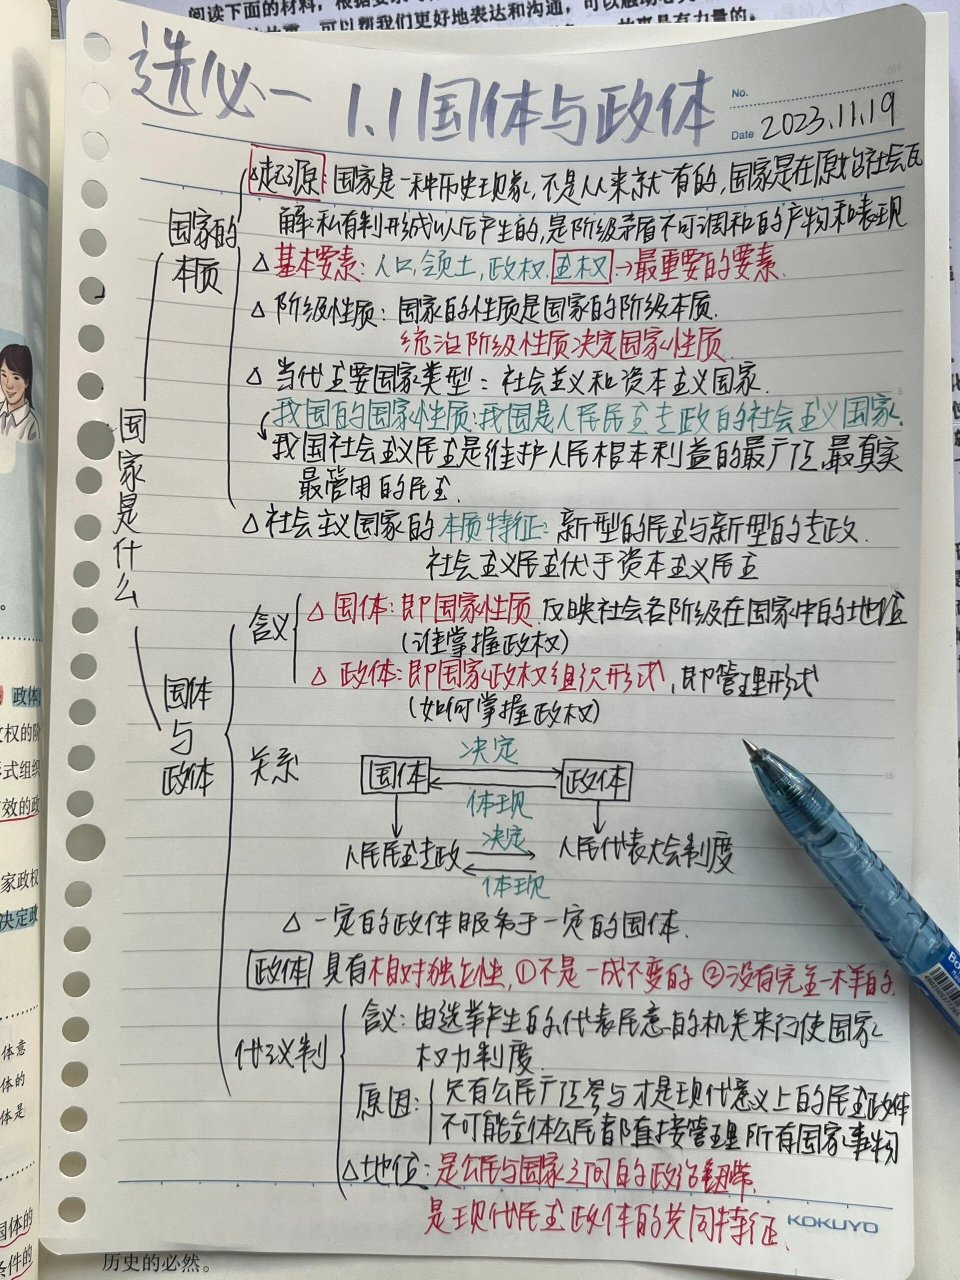 阅读下面的材料，根据要求
选必一 1.1国体与政体
No.
Date 2023.11.19
起源：国家是一种历史现象，不是从来就有的，国家是在原始社会瓦
解，私有制形成以后产生的，是阶级矛盾不可调和的产物和表现
国家的
本质
△基本要素：人口，领土，政权，主权→最重要的要素.
△阶级性质：国家的性质是国家的阶级本质.
统治阶级性质决定国家性质.
△当代主要国家类型：社会主义和资本主义国家.
我国的国家性质：我国是人民民主专政的社会主义国家.
我国社会主义民主是维护人民根本利益的最广泛、最真实
最管用的民主.
△社会主义国家的本质特征：新型的民主与新型的专政.
社会主义民主优于资本主义民主
国家是什么
含义
△国体：即国家性质.反映社会各阶级在国家中的地位
（谁掌握政权）
△政体：即国家政权组织形式，即管理形式
（如何掌握政权）
国体
与
政体
关系
决定
国体 政体
体现
决定
人民民主专政 人民代表大会制度
体现
△一定的政体服务于一定的国体.
政体 具有相对独立性，①不是一成不变的 ②没有完全一样的.
代议制
含义：由选举产生的，代表民意的机关来行使国家
权力制度.
原因：
只有公民广泛参与才是现代意义上的民主政体
不可能全体公民都直接管理所有国家事物
△地位：是公民与国家之间的政治纽带.
是现代民主政体的共同特征.
KOKUYO
政体
权的阶
式组织
效的政
家政权
决定政
体意
体的
体是
国体的
条件的
历史的必然。